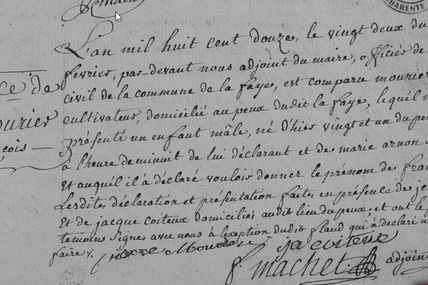 CHARENTE
L'an mil huit cent douze, le vingt deux du
fevrier, par devant nous adjoint du maire, officier de
civil de la commune de la faye, est comparu mourier
cultivateur, domicilié au peux dudit la faye, lequel n
présenté un enfant mâle, né d'hier vingt et un du pr
à l'heure de minuit de lui déclarant et de marie arnon
et auquel il à déclaré vouloir donner le prénom de fran
Lesdits déclaration et présentation faits, en présence des
et de jacque coiteux domiciliés audit lieu du peux; et ont le
temoins signés avec nous à l'exception dudit flaud qui à déclaré n
faire
ce de
ourier
çois
machet adjoint